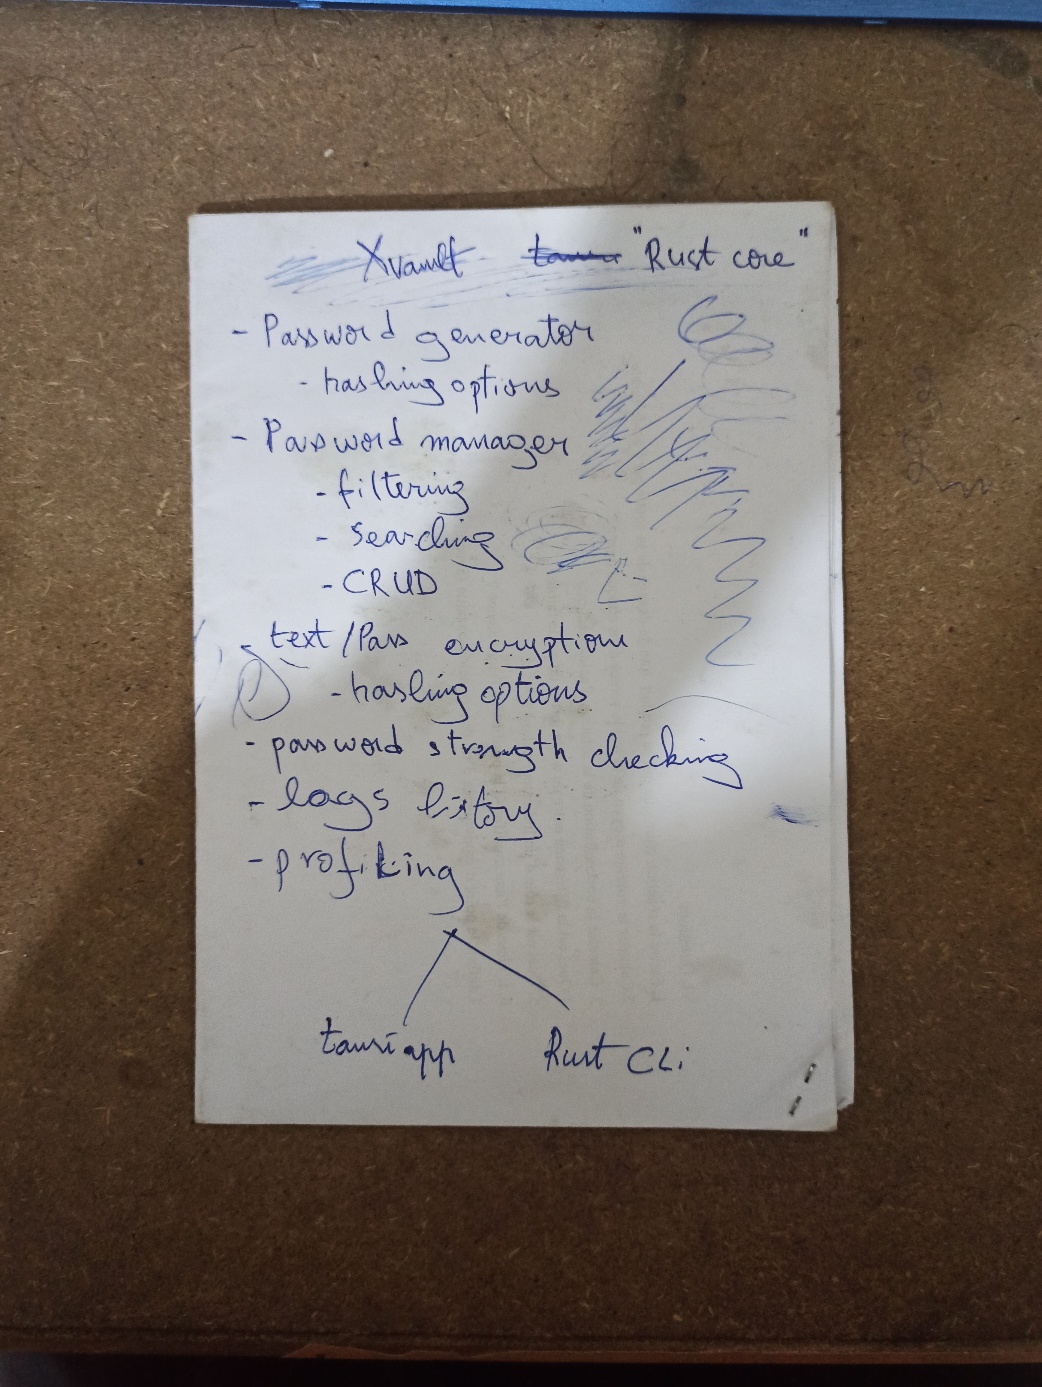 Xvault "Rust core"
- Password generator
- hashing options
- Password manager
- filtering
- searching
- CRUD
- text/Pass encryption
- hashing options
- password strength checking
- logs history.
- profiling
tauri app Rust CLi